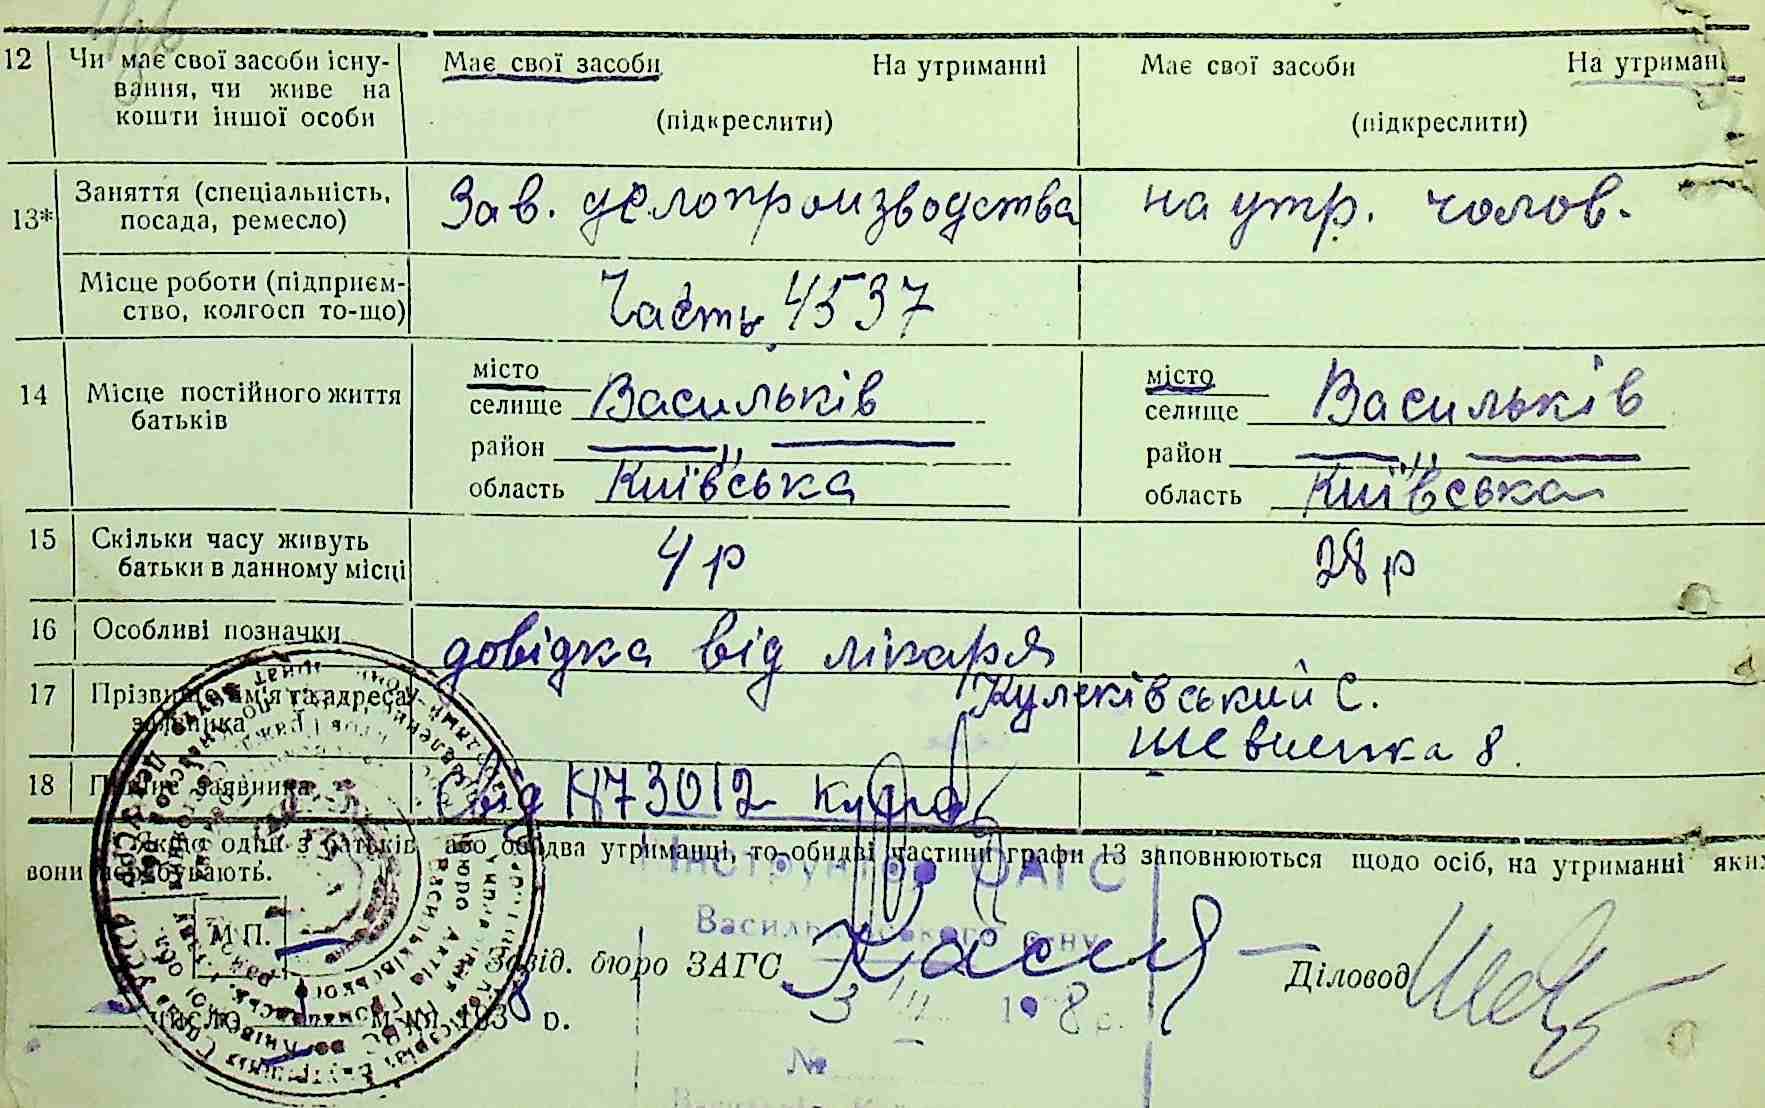 12 Чи має свої засоби існу- Має свої засоби На утриманні Має свої засоби На утриман
вання, чи живе на
кошти іншої особи (підкреслити) (підкреслити)
13* Заняття (спеціальність, посада, ремесло) Зав. делопроизводства на утр. чолов.
Місце роботи (підприєм-
ство, колгосп то-що) Часть 4537
14 Місце постійного життя батьків
місто
селище Васильків
район — „ —
область Київська
місто
селище Васильків
район — „ —
область Київська
15 Скільки часу живуть 4 р 28 р
батьки в данному місці
16 Особливі позначки довідка від лікаря
17 Прізвище ім'я та адреса заявника Кулеківський С.
Шевченка 8.
18 Підпис заявника 473012
Якщо один з батьків або обидва утриманці, то обидві частини графи 13 заповнюються щодо осіб, на утриманні яких
вони перебувають.
Інструктор ЗАГС
М.П.
Завід. бюро ЗАГС
Діловод
число м-ця 1938 р.
№